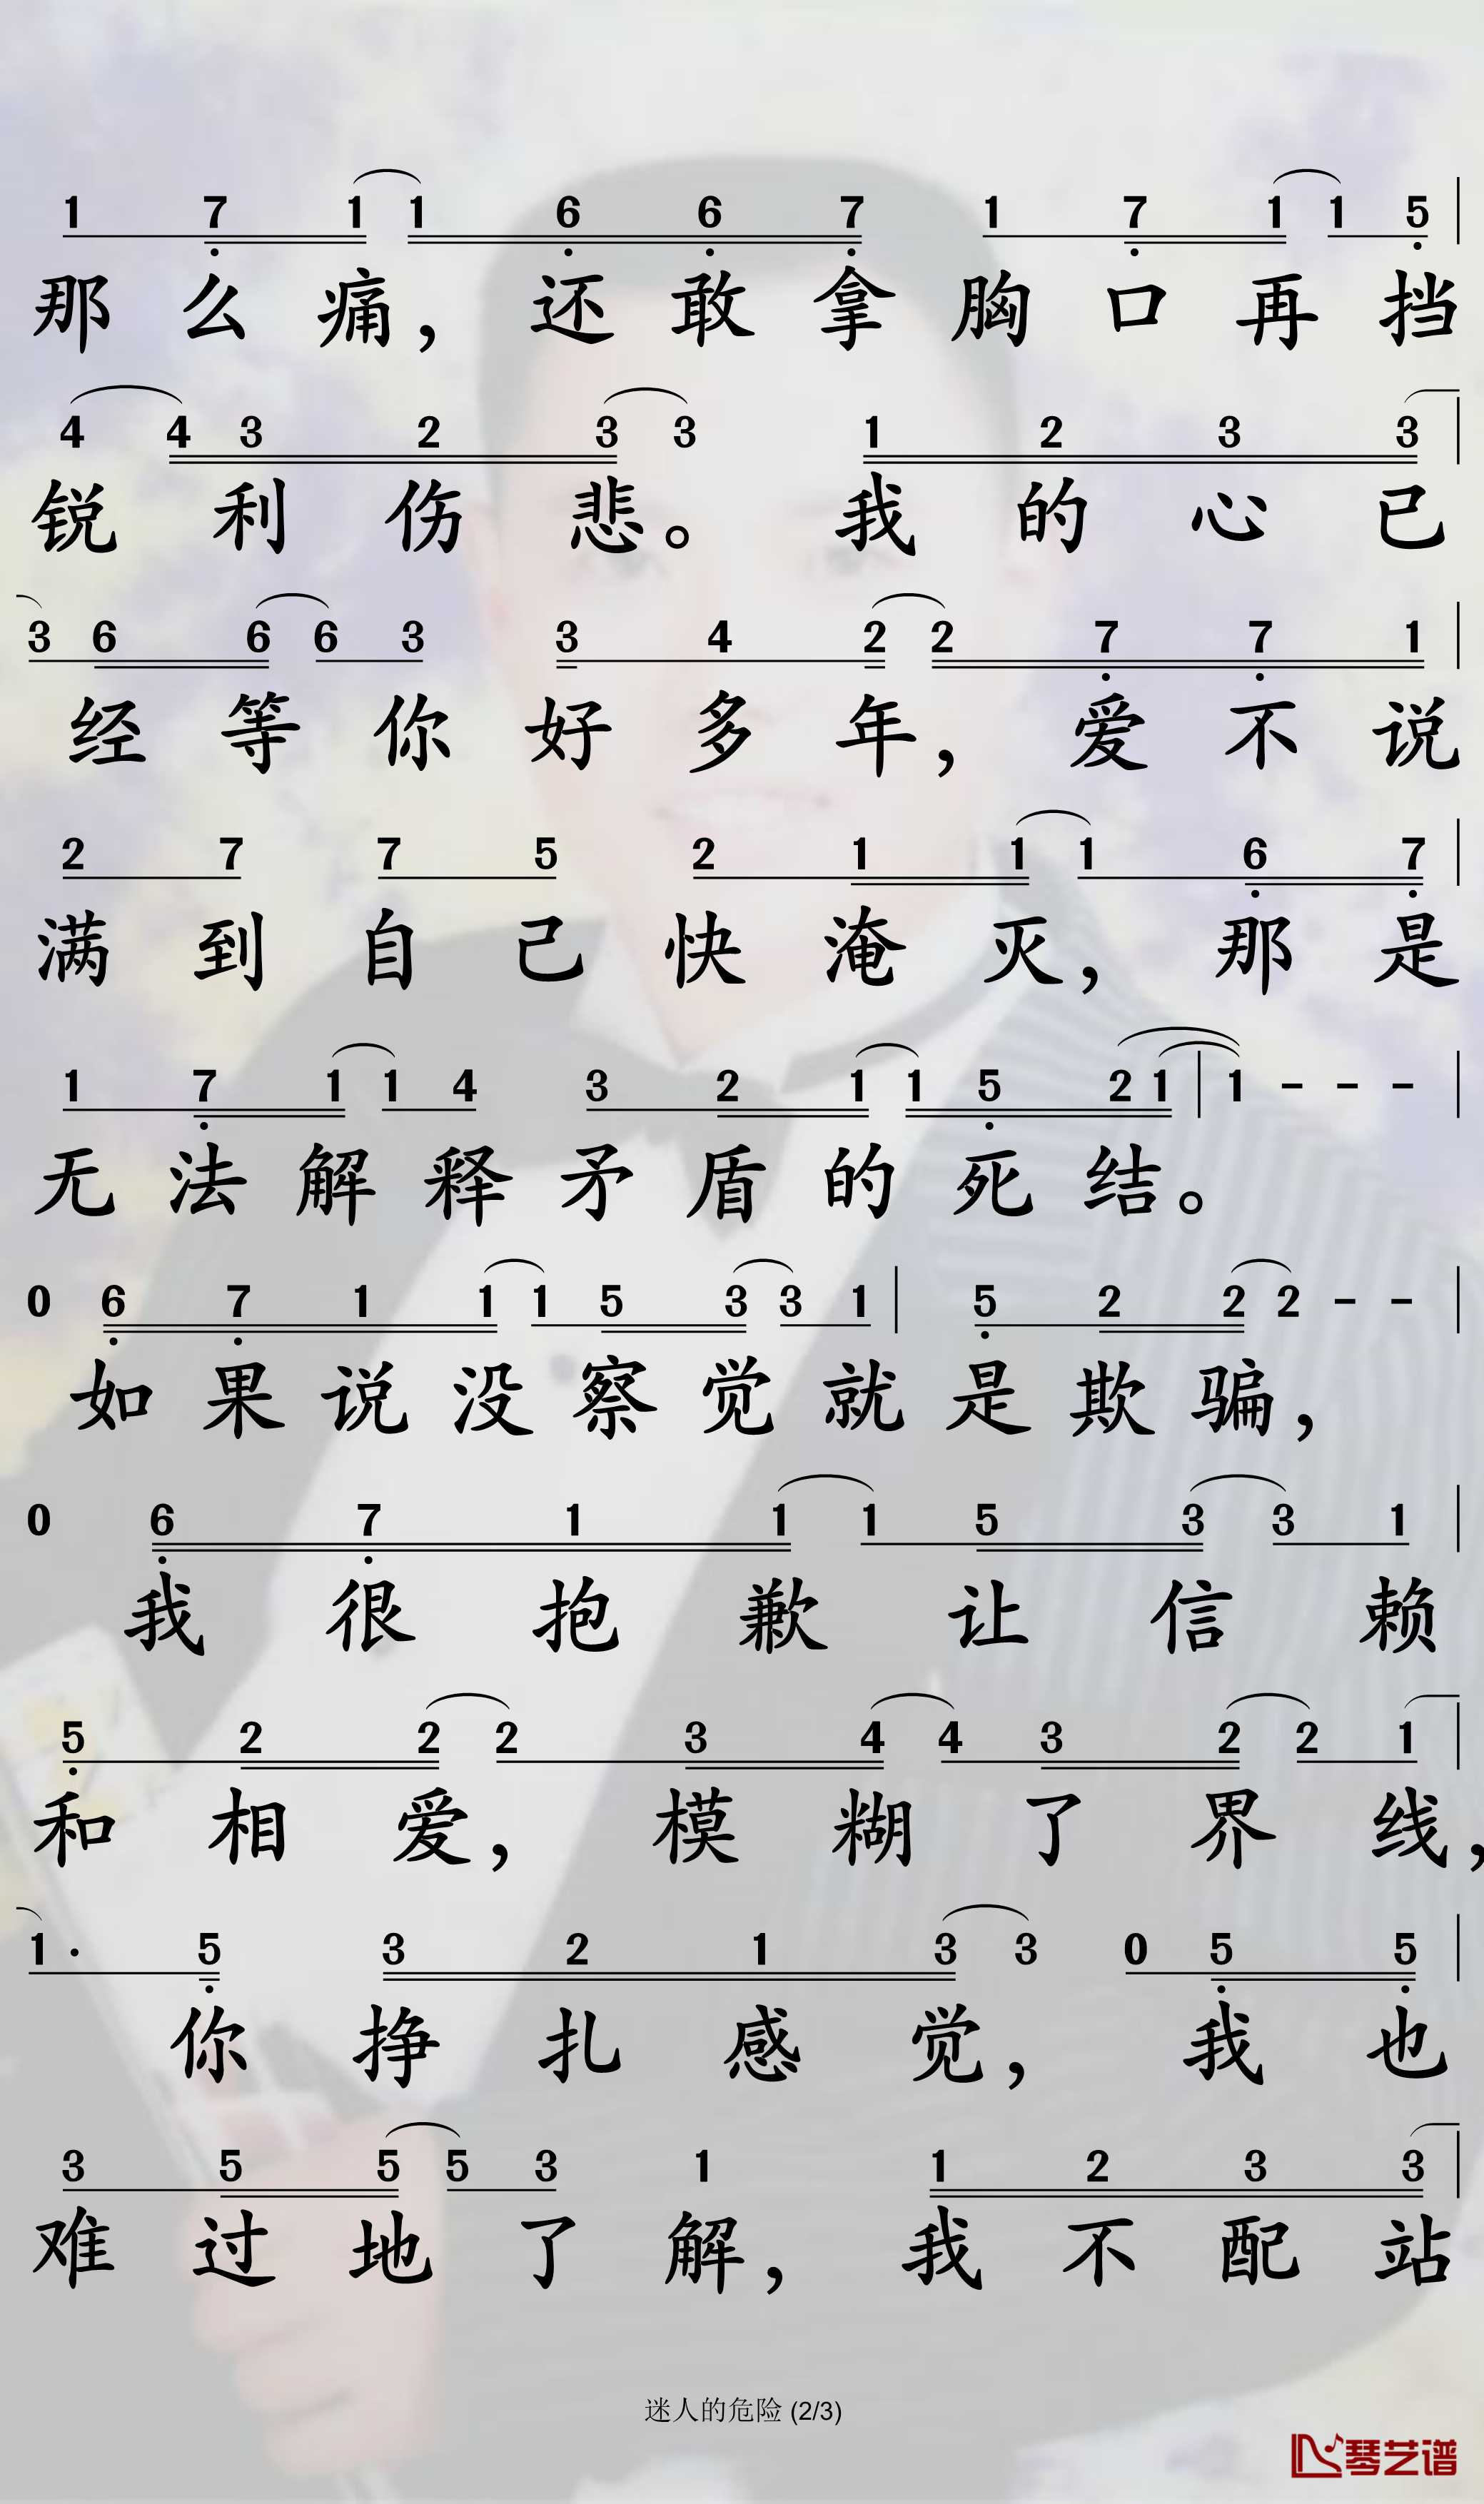 1 7 1 1 6 6 7 1 7 1 1 5
那么痛，还敢拿胸口再挡
4 4 3 2 3 3 1 2 3 3
锐利伤悲。我的心已
3 6 6 6 3 3 4 2 2 7 7 1
经等你好多年，爱不说
2 7 7 5 2 1 1 1 6 7
满到自己快淹灭，那是
1 7 1 1 4 3 2 1 1 5 2 1 | 1 - - -
无法解释矛盾的死结。
0 6 7 1 1 1 5 3 3 1 | 5 2 2 2 - -
如果说没察觉就是欺骗，
0 6 7 1 1 1 5 3 3 1
我很抱歉让信赖
5 2 2 2 3 4 4 3 2 2 1
和相爱，模糊了界线，
1· 5 3 2 1 3 3 0 5 5
你挣扎感觉，我也
3 5 5 5 3 1 1 2 3 3
难过地了解，我不配站
迷人的危险 (2/3)
琴艺谱